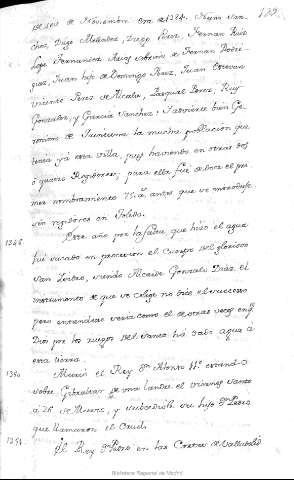 139
de seis de Noviembre era de 1384. Nuño San-
chez, Diego Melendez, Diego Perez, Fernan Ruiz
Lope Fernandez, sobrino de Fernan Rodri-
guez, Juan hijo de Domingo Perez, Juan Estevan
Vicente Perez de Alcala, Pasqual Perez, Ruy
Gonzalez, y Garcia Sanchez. Advierte bien Ge-
ronimo de Quintana la mucha poblacion que
tenia ya esta villa, pues haviendo en otras dos
ó quatro Regidores; para ella fué de doce el pri-
mer nombramiento 75 años antes que se introduje-
sen rejidores en Toledo.
1346. Este año por la falta que hizo el agua
fué sacado en procesion el cuerpo del glorioso
San Isidro, siendo Alcaide Gonzalo Diaz, el
instrumento de que se colige no dice el successo
pero entenderse seria como el de otras veces embió
Dios por los ruegos del Santo há su agua á
esta tierra.
1350. Murió el Rey Dn Alonso 11º estando
sobre Gibraltar de una landre el viernes santo
á 26 de Marzo, y subcedióle su hijo Dn Pedro
que llamaron el Cruel.
1351. El Rey Dn Pedro en las Cortes de Valladolid
Biblioteca Regional de Madrid